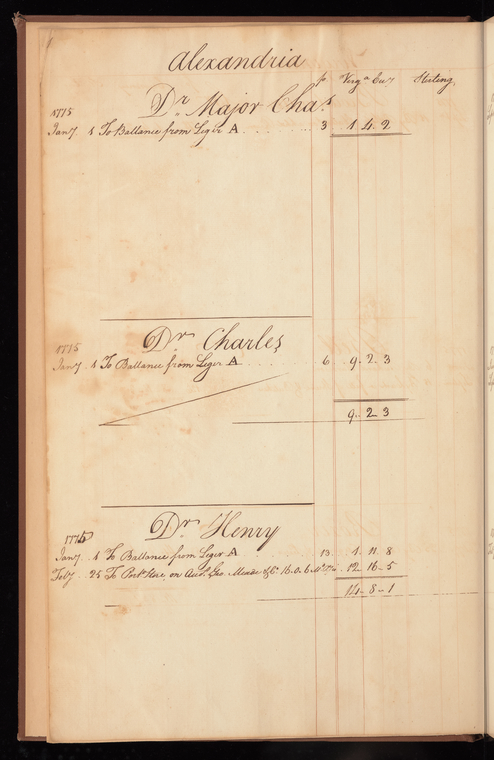 Alexandria
fo Virgª Cur Sterling
Dr Major Chas
1775
Jany 1 To Ballance from Leger A 3 1 4 2
1775
Dr Charles
Jany 1 To Ballance from Leger A 6 9 2 3
9 2 3
1775
Dr Henry
Jany 1 To Ballance from Leger A 13 1 11 8
Feby 25 To Port. Store on Acct. Geo. Meade & Co 16.0.6 12 16 5
14 8 1